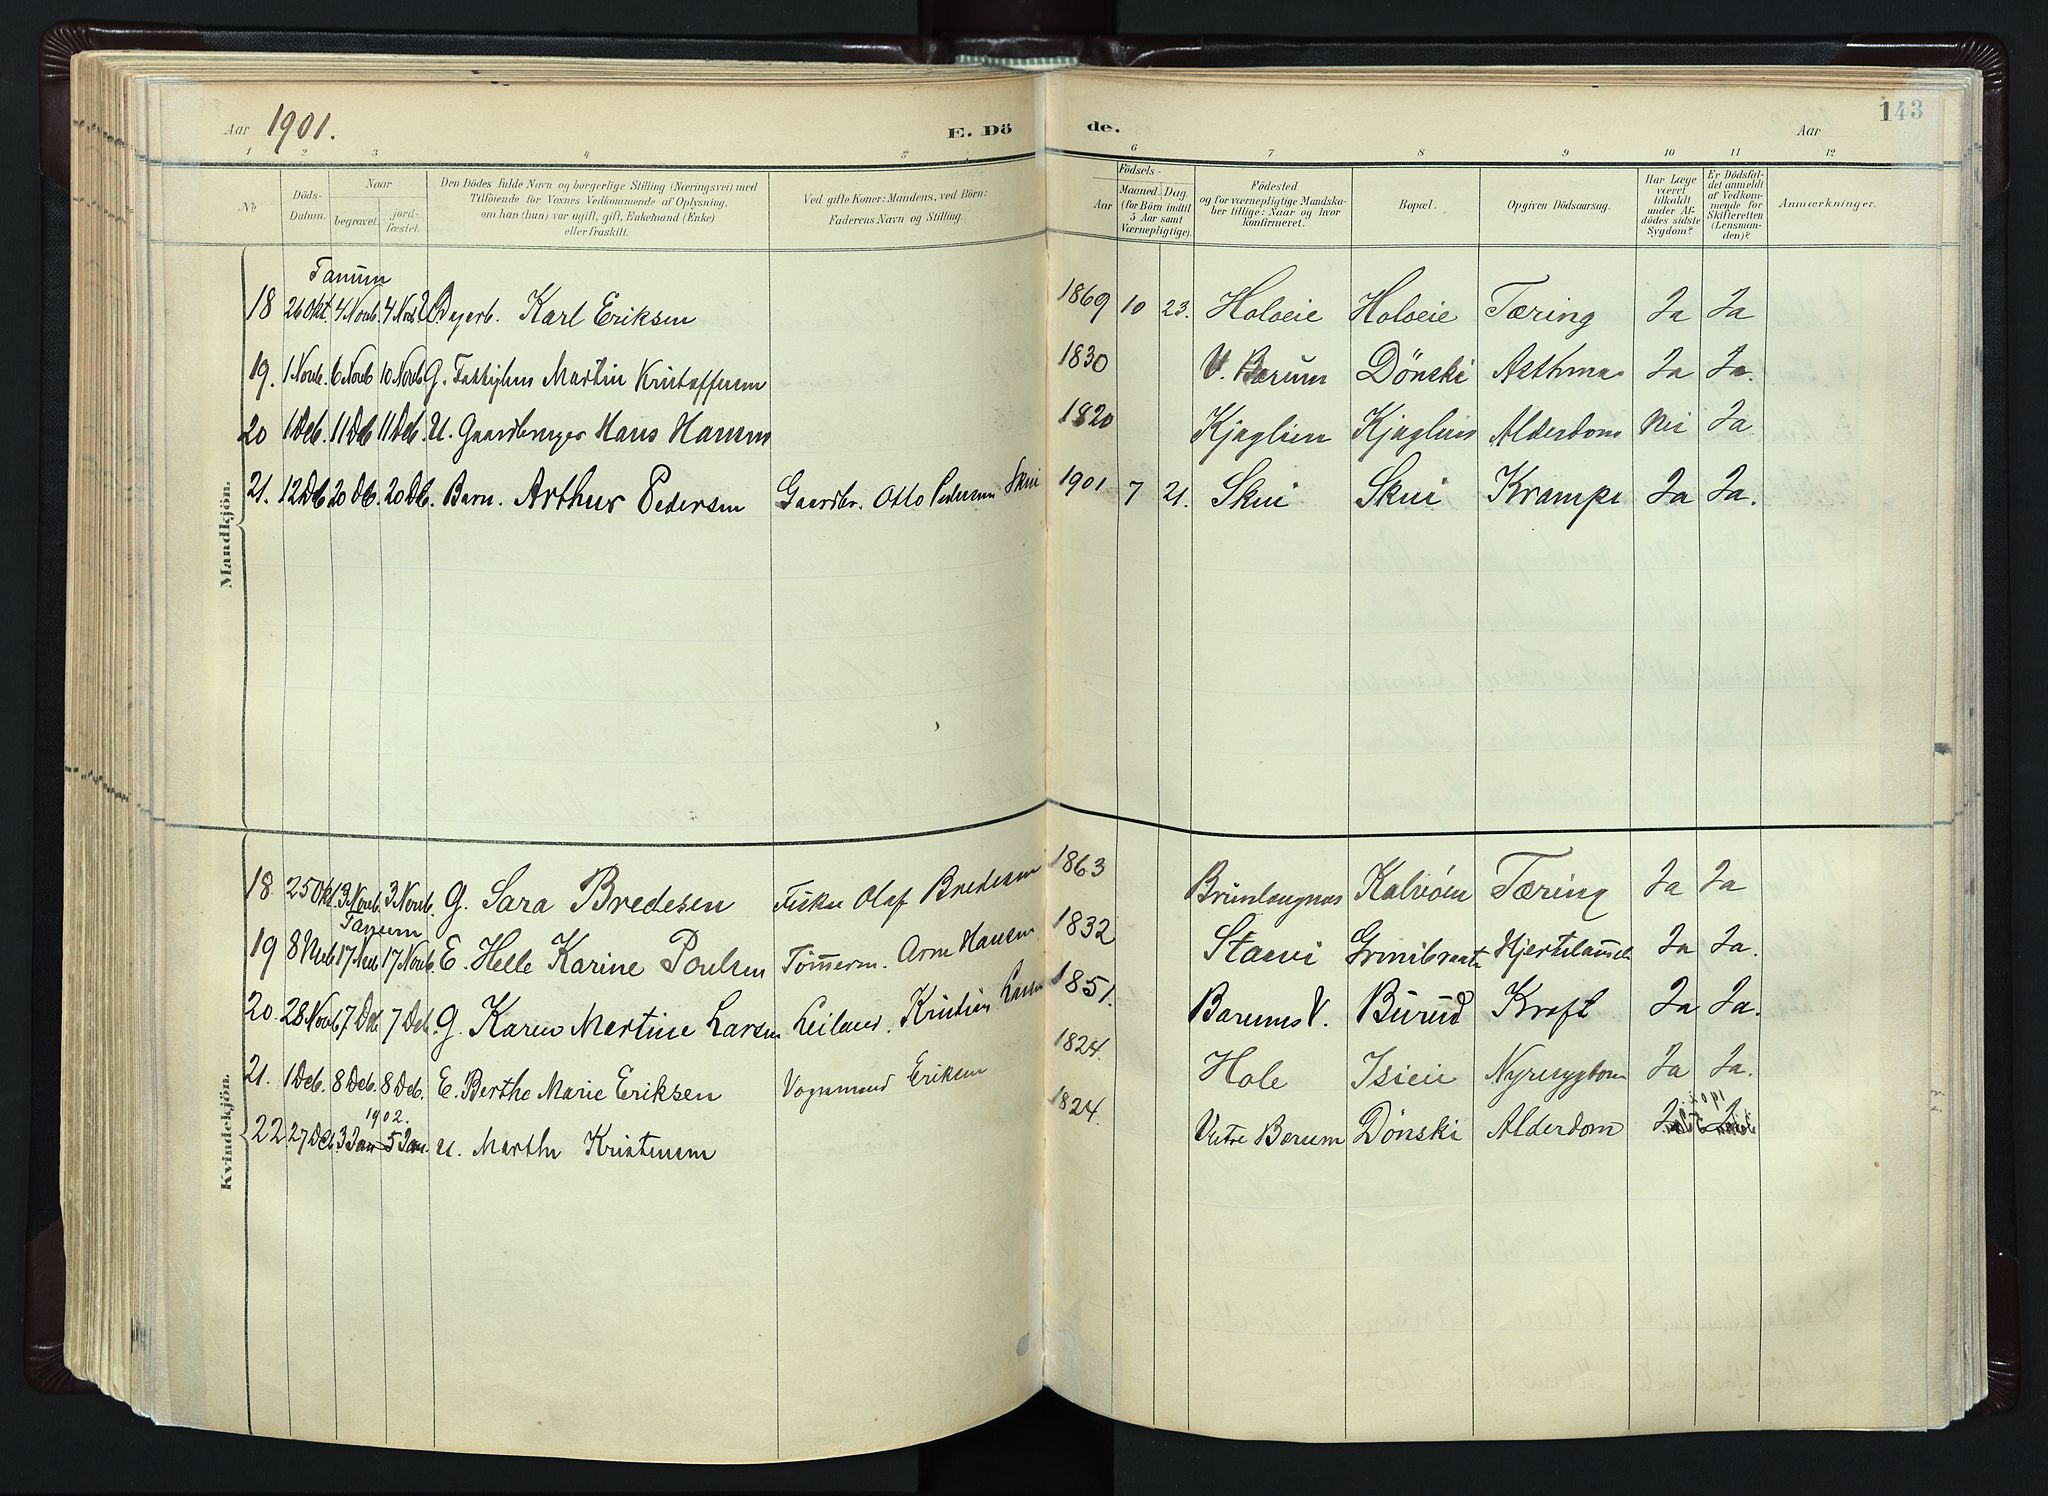 143
Aar 1901.
E. Dö
de.
Aar
1 2 3 4 5 6 7 8 9 10 11 12
No
Döds-Datum.
Naar
begravet.
jordfæstet.
Den Dödes fulde Navn og borgerlige Stilling (Næringsvei) med
Tilföiende för Voxnes Vedkommende af Oplysning,
om han (hun) var ugift, gift, Enkemand (Enke)
eller fraskilt.
Ved gifte Koner: Mandens, ved Börn:
Faderens Navn og Stilling.
Födsels-
Aar
Maaned. Dag.
(for Börn indtil
5 Aar samt
Værnepligtige).
Födested
og for værnepligtige Mandska-
ber tillige: Naar og hvor
konfirmeret.
Bopæl.
Opgiven Dödsaarsag.
Har Læge
været
tilkaldt
under Af-
dödes sidste
Sygdom?
Er Dödsfal-
det anmeldt
af Vedkom-
mende for
Skifteretten
(Lensman-
den)?
Anmærkninger.
Mandkjön.
Tanum
18 26 Okt. 4 Novb. 4 Nov. Karl Eriksen 1869 10 23. Holveie Holveie Tæring Ja Ja
19. 1 Novb. 6 Novb 10 Novb G. Martin Kristoffersen 1830 V. Bærum Dönski Asthma Ja Ja.
20 1 Deb. 11 Deb 11 Deb. U. Gaardbruger Hans Hansen 1820 Kjaglien Kjaglien Alderdom Nei Ja
21. 12 Db 20 Db. 20 Db. Barn. Arthur Pedersen Gaardbr. Otto Pedersen Skui 1901 7 21. Skui Skui Krampe Ja Ja.
Kvindekjön.
18 25 Okt. 3 Novb. 3 Novb. G. Sara Bredesen Fisker Olaf Bredesen 1863 Brunlaugnæs Kalvöen Tæring Ja Ja
Tanum
19 8 Nvb 17 Nvb 17 Novb. E. Helle Karine Poulsen Tömmerm. Arne Hansen 1832 Grinibraate Ja Ja.
20. 28 Novb 7 Deb 7 Deb. G. Karen Martine Larsen Leiland. Kristian Larsen 1851. Bærums V. Burud Kræft Ja Ja.
21. 1 Deb. 8 Deb. 8 Deb. E. Berthe Marie Eriksen Vognmand Eriksen 1824. Hole Isieie Nyresygdom Ja Ja.
1902.
22 27 Deb 3 Jan 5 Jan. U. Marthe Kristensen 1824. Vestre Bærum Dönski Alderdom Ja Ja